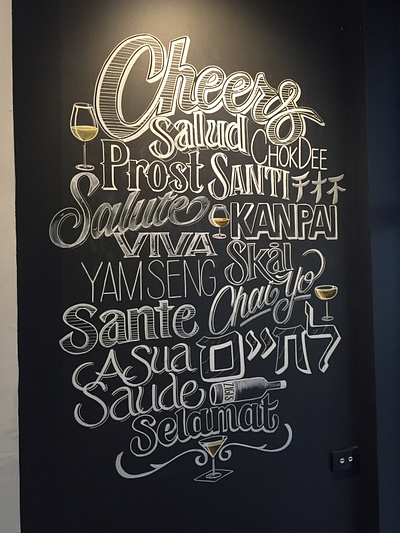 Cheers
Salud
CHOKDEE
Prost SANTI
Salute KANPAI
VIVA
YAMSENG Skål
Chai yo
Sante
A Sua לחיים
Saude
Selamat